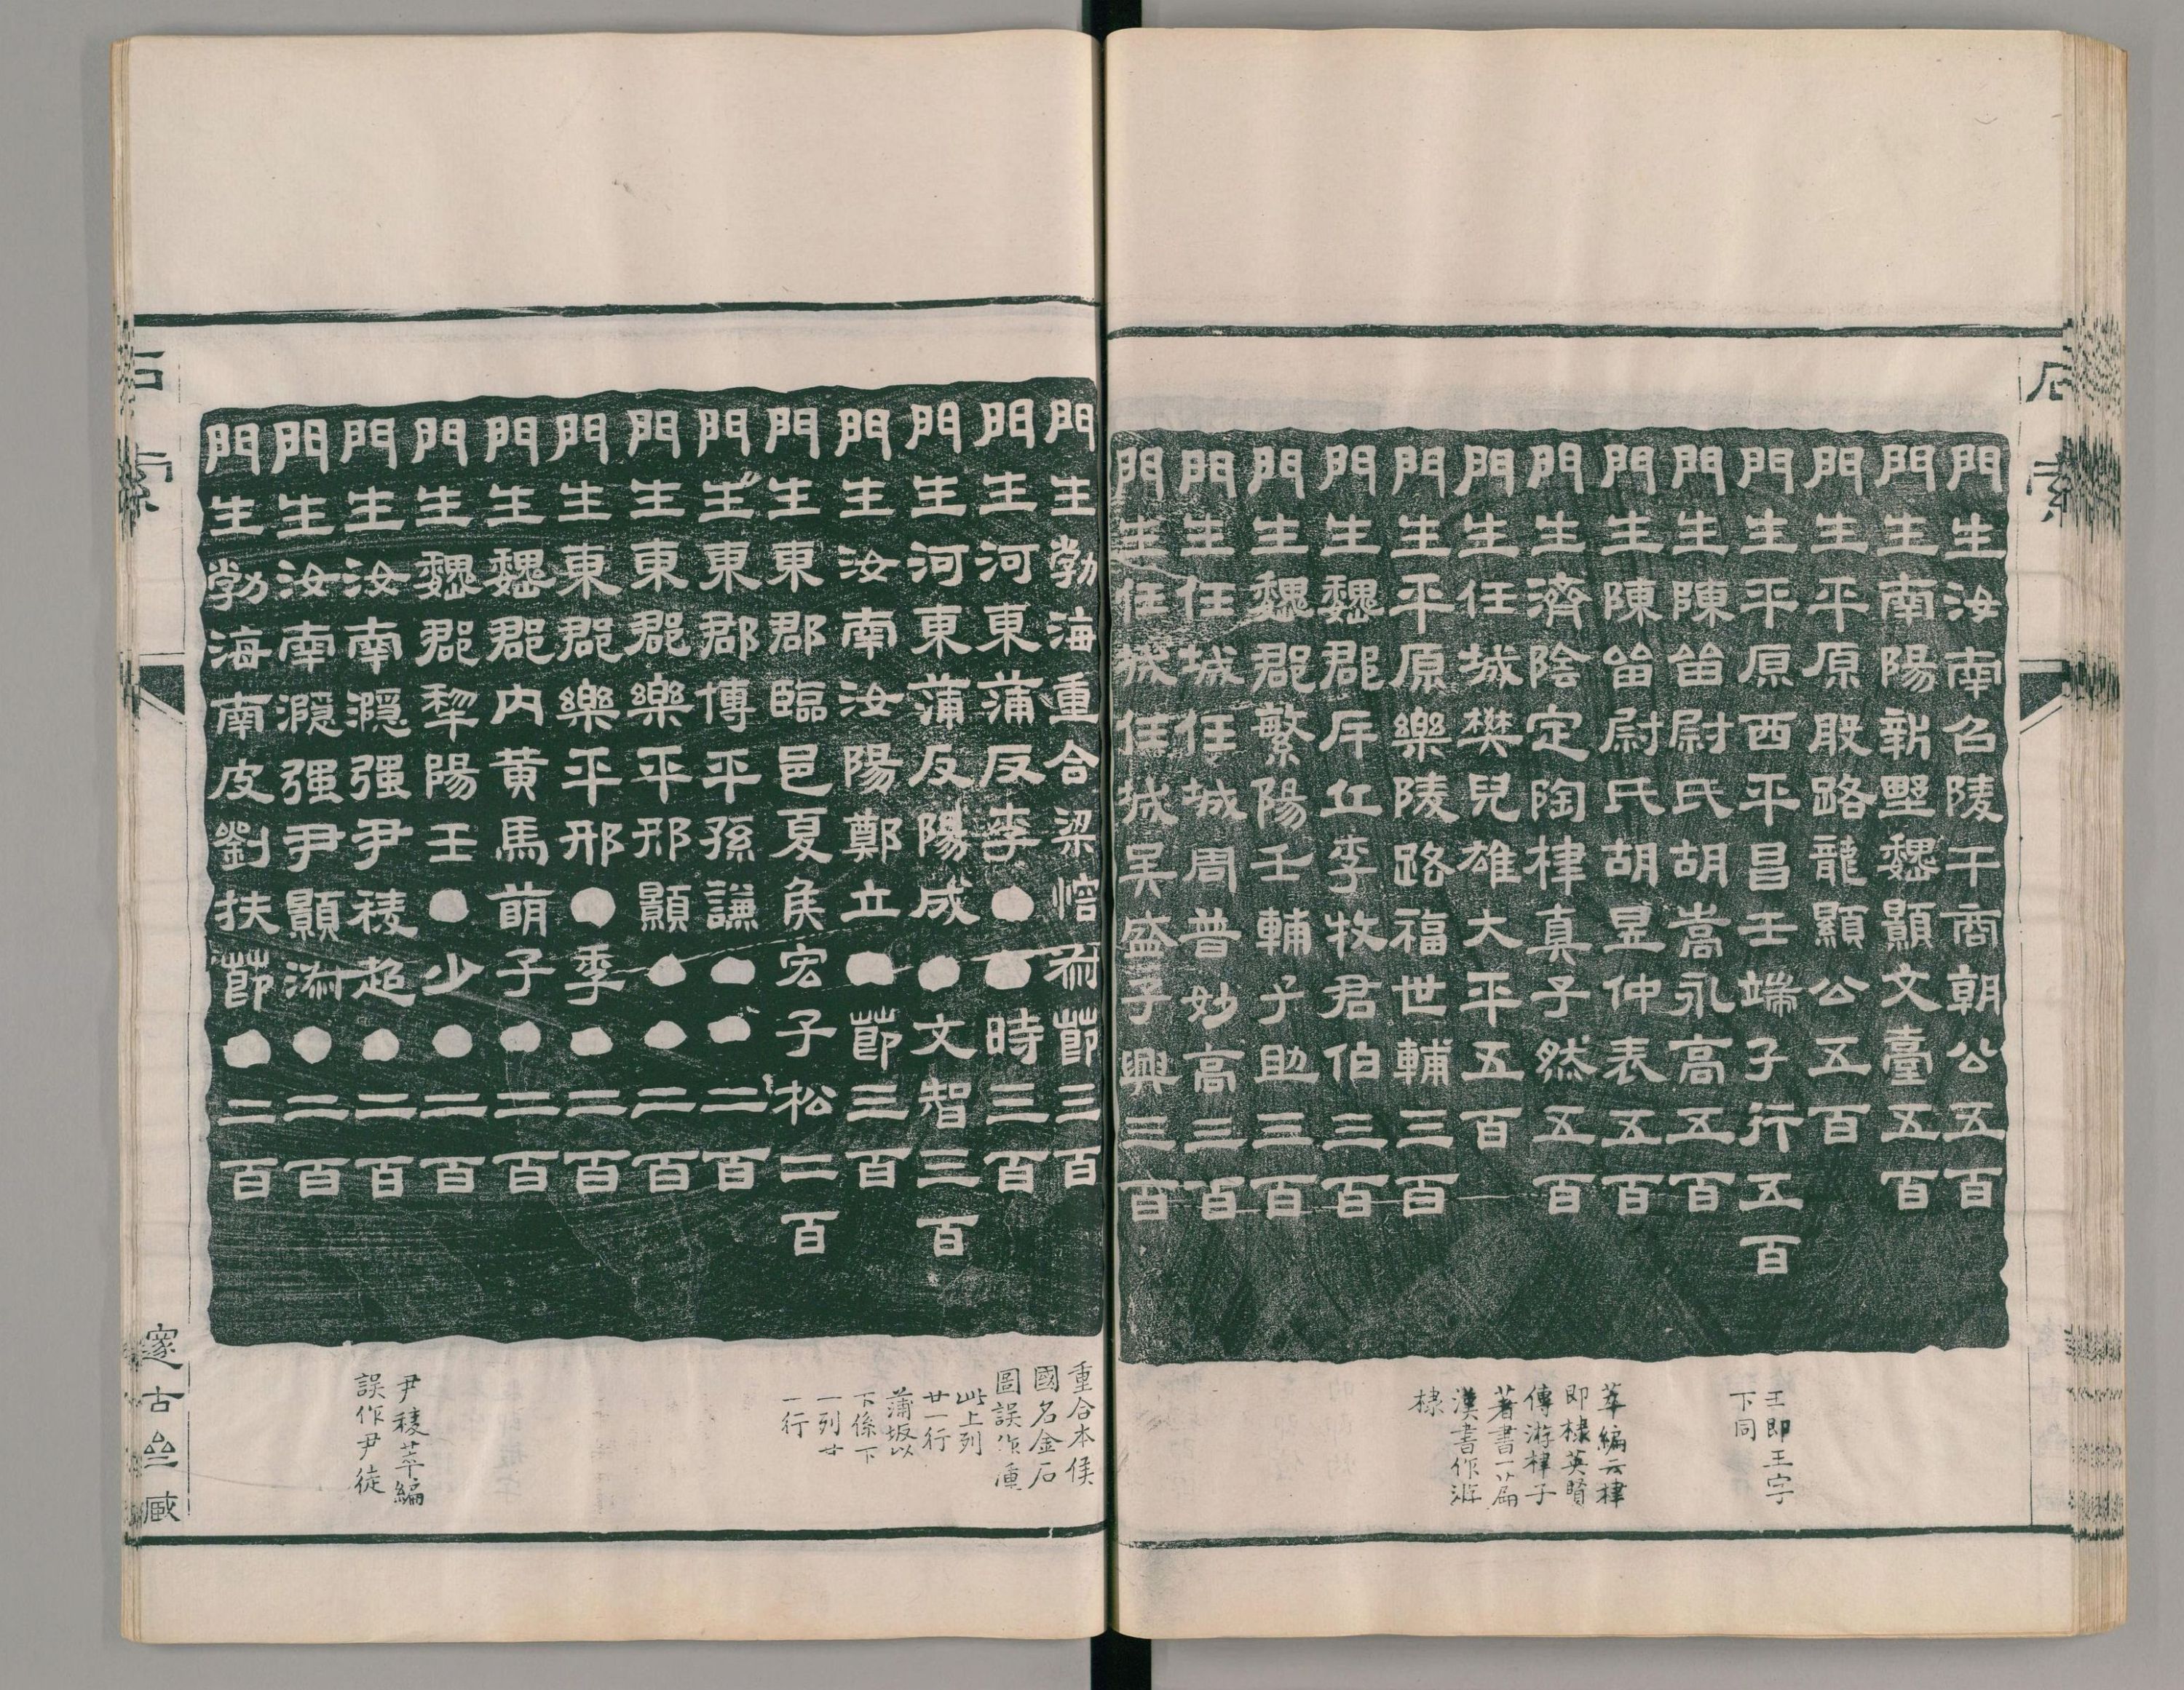 石索
門生汝南召陵干商朝公五百
門生南陽新壄魏顯文臺五百
門生平原般路龍顯公五百
門生平原西平昌王端子行五百
門生陳留尉氏胡嵩永高五百
門生陳留尉氏胡昱仲表五百
門生濟陰定陶㯓真子然五百
門生任城樊兒雄大平五百
門生平原樂陵路福世輔三百
門生魏郡斥丘李牧君伯三百
門生魏郡繁陽壬輔子助三百
門生任城任城周普妙高三百
門生任城任城吴盛子興三百
王即王字
下同
萃編云㯓
即棣英賢
傳游㯓子
著書一篇
漢書作游
棣
門生勃海重合梁愘叔節三百
門生河東蒲反李●●時三百
門生河東蒲反陽成●文智三百
門生汝南汝陽鄭立●節三百
門生東郡臨邑夏矦宏子松二百
門生東郡博平孫謙●●二百
門生東郡樂平邢顯●●二百
門生東郡樂平邢●季●二百
門生魏郡内黄馬萌子●二百
門生魏郡犂陽王●少●二百
門生汝南㶏强尹稜超●二百
門生汝南㶏强尹顯●二百
門生勃海南皮劉扶節●二百
重合本侯
國名金石
圖誤作重
此上列
廿一行
蒲坂以
下係下
一列廿
一行
尹稜萃編
誤作尹徒
石索
邃古亝臧